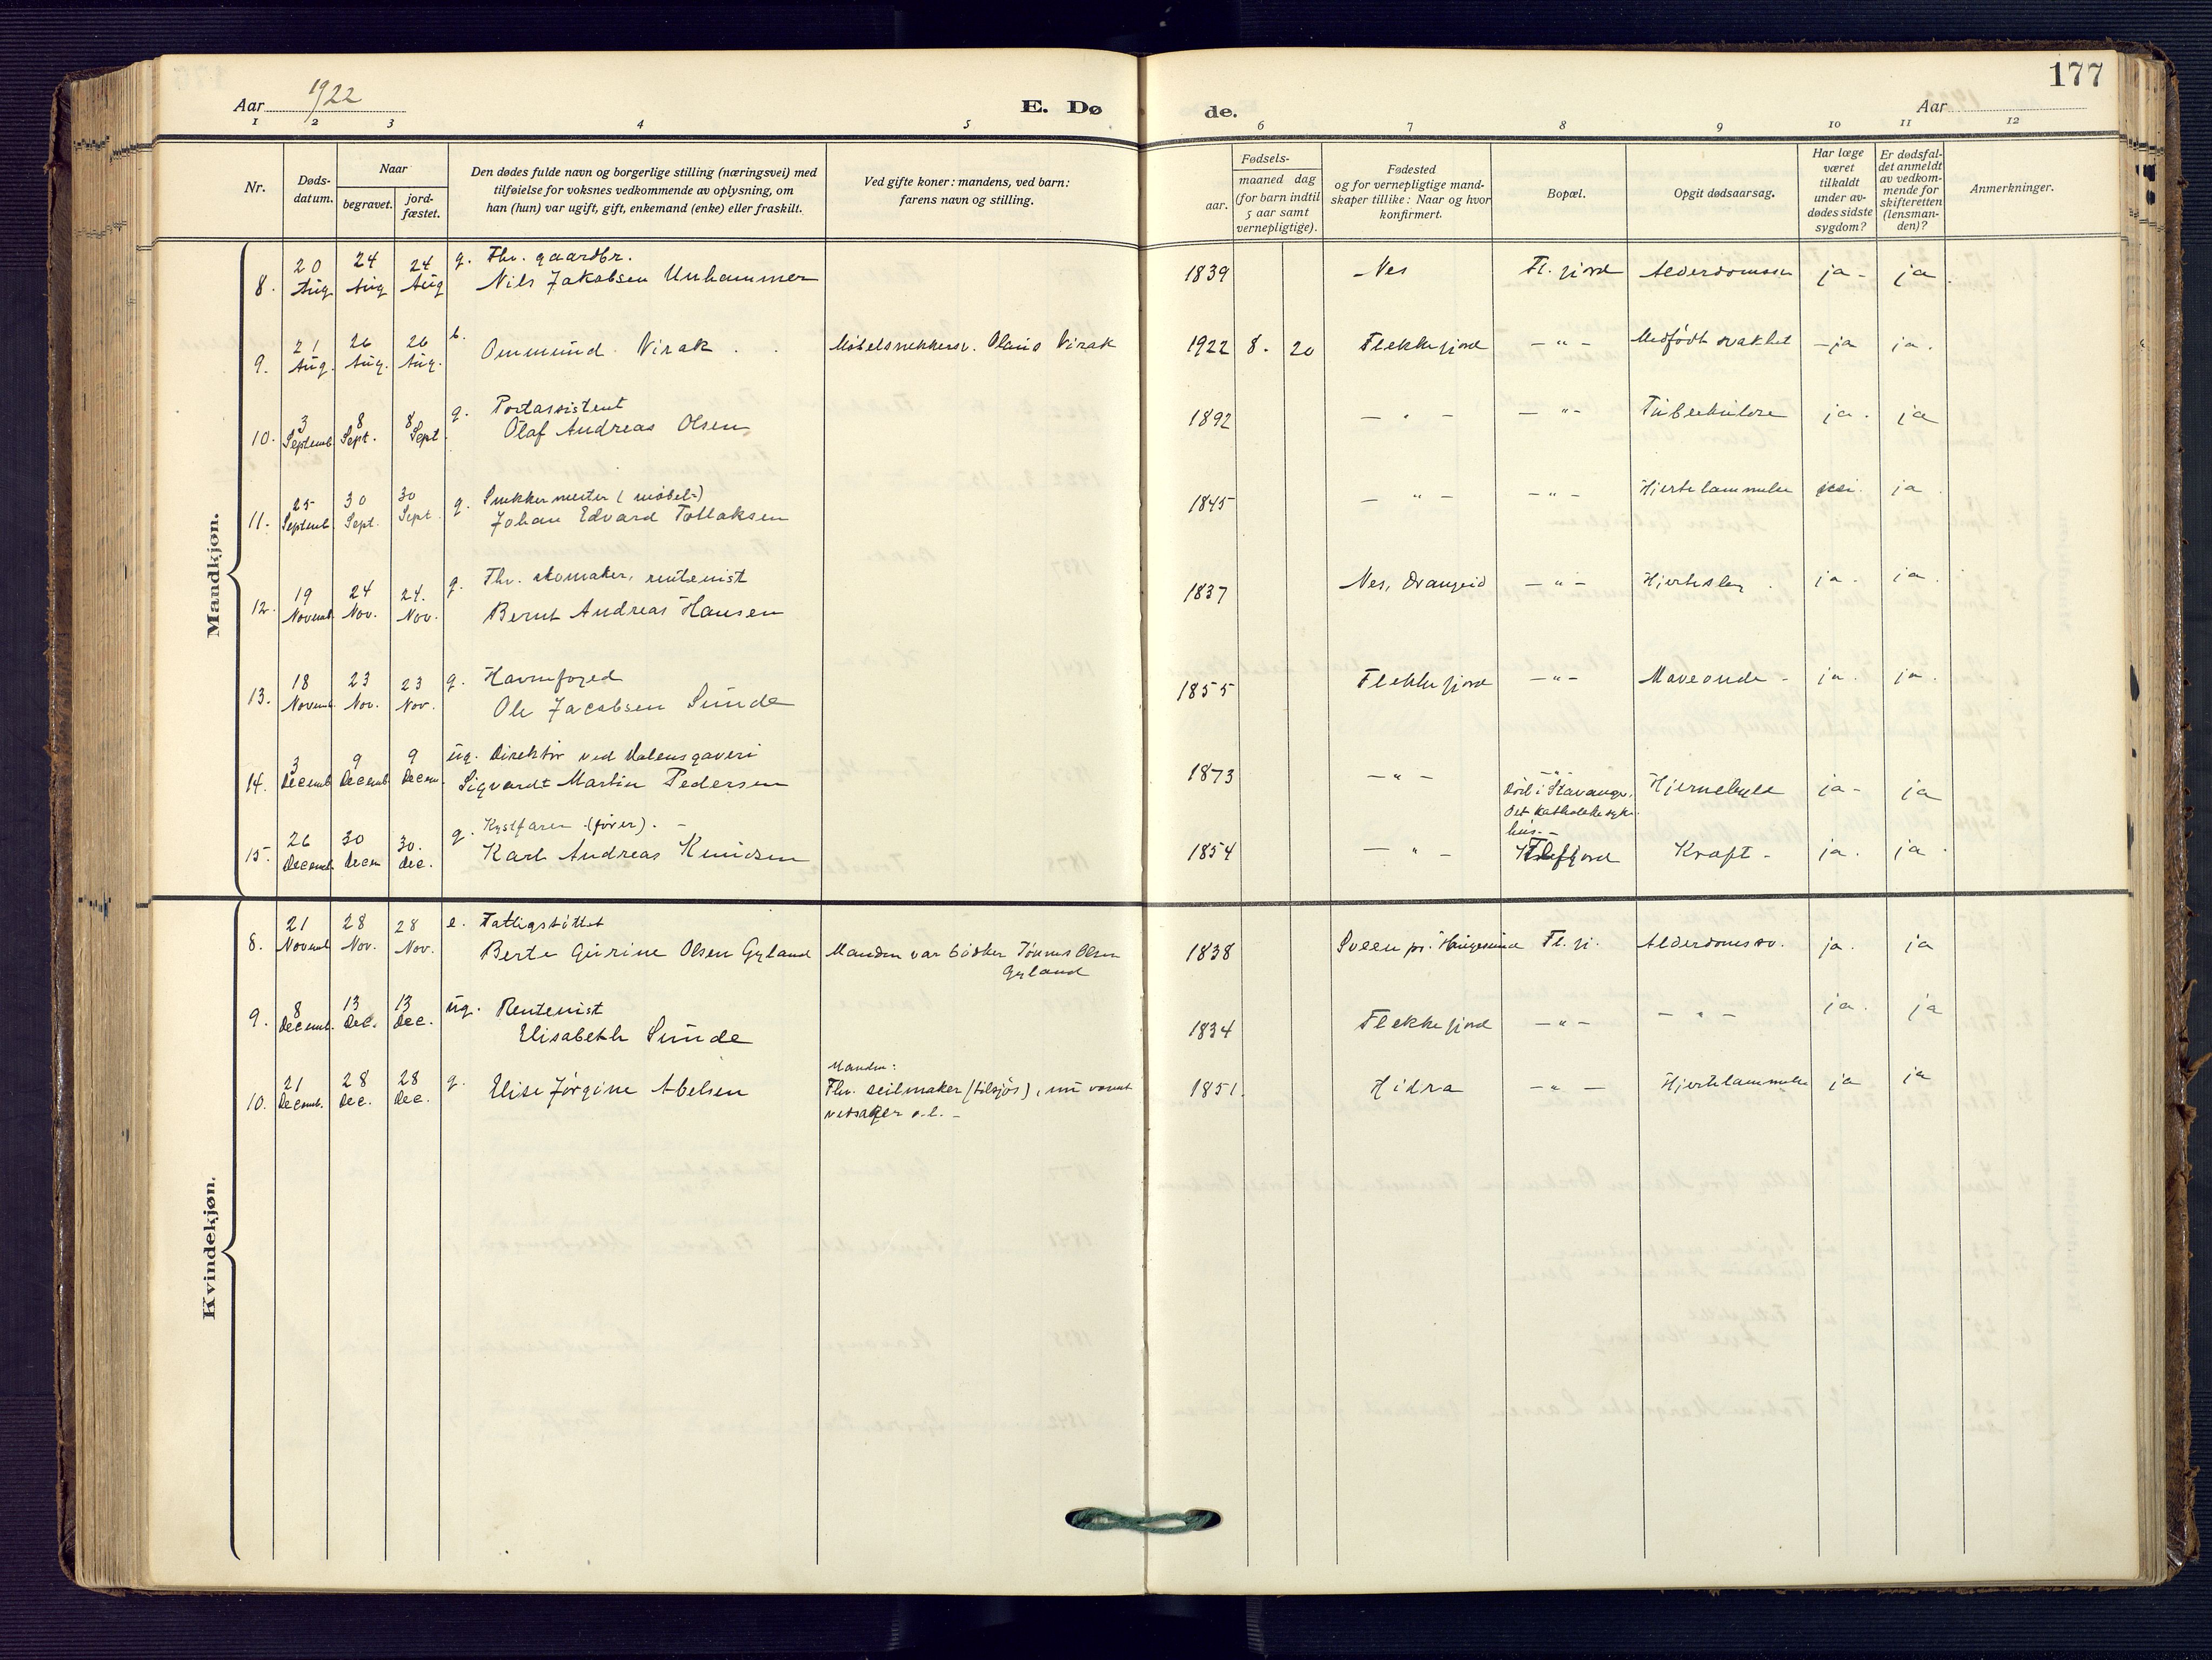 177
Aar 1922
E. Dø
de.
Aar
1 2 3 4 5 6 7 8 9 10 11 12
Nr.
Døds-
datum.
Naar
begravet.
jord-
fæstet.
Den dødes fulde navn og borgerlige stilling (næringsvei) med
tilføielse for voksnes vedkommende av oplysning, om
han (hun) var ugift, gift, enkemand (enke) eller fraskilt.
Ved gifte koner: mandens, ved barn:
farens navn og stilling.
Fødsels-
aar.
maaned dag
(for barn indtil
5 aar samt
vernepligtige).
Fødested
og for vernepligtige mand-
skaper tillike: Naar og hvor
konfirmert.
Bopæl.
Opgit dødsaarsag.
Har læge
været
tilkaldt
under av-
dødes sidste
sygdom?
Er dødsfal-
det anmeldt
av vedkom-
mende for
skifteretten
(lensman-
den)?
Anmerkninger.
Mandkjøn.
20 24 24 g. Fhv. gaardbr.
8. Aug Aug Aug Nils Jakobsen Unhammer 1839 Nes Fl. fjord Alderdomssv ja - ja
21 26 26 b.
9. Aug. Aug. Aug. Ommund Virak Møbelsnekkersv. Olaus Virak 1922 8. 20 Flekkefjord - " - Medfødt svakhet - ja ja.
3 8 8 g. Postassistent
10. Septemb Sept. Sept. Olaf Andreas Olsen 1892 - " - - " - Tuberkulose ja. ja
25 30 30 g. Snekkermester (møbel-)
11. Septemb Sept. Sept. Johan Edvard Tollaksen 1845 - " - - " - Hjertelammelse nei. ja
19 24 24. g. Fhv. skomaker, rentenist
12. Novemb. Nov. Nov. Bernt Andreas Hansen 1837 Nes, Drangeid - " - Hjerteslag ja. ja.
18 23 23 g. Havnefoged
13. Novemb. Nov. Nov. Ole Jacobsen Sunde 1855 Flekkefjord - " - Maveonde - ja. ja.
3 9 9 ug. Direktør ved Valensgaveri
14. Decemb Decemb Decem. Sigvardt Martin Pedersen 1873 - " - - " - Hjernebyld ja - ja
død i Stavanger.
Det katholske syke-
hus. -
26 30 30. g. Kystfarer (fører). -
15. Decemb. Decem Dec. Karl Andreas Knudsen 1854 - " - Flefjord Kræft - ja. ja.
Kvindekjøn.
21 28 28 e. Fattigstøttet
8. Novemb Nov. Nov. Berte Gurine Olsen Gyland Manden var bødker Tønnes Olsen 1838 Sveen pr. Haugesund Fl. fj. Alderdomssv. ja. ja
Gyland
8 13 13 ug. Rentenist
9. Decemb. Dec. Dec. Elisabeth Sunde 1834 Flekkefjord - " - - " - ja. ja
21 28 28 g. Manden:
10. Decemb. Dec. Dec. Elise Jørgine Abelsen Fhv. seilmaker (tilsjøs), nu vesent 1851. Hidra - " - Hjertelammelse ja ja
vedsager o.l. -